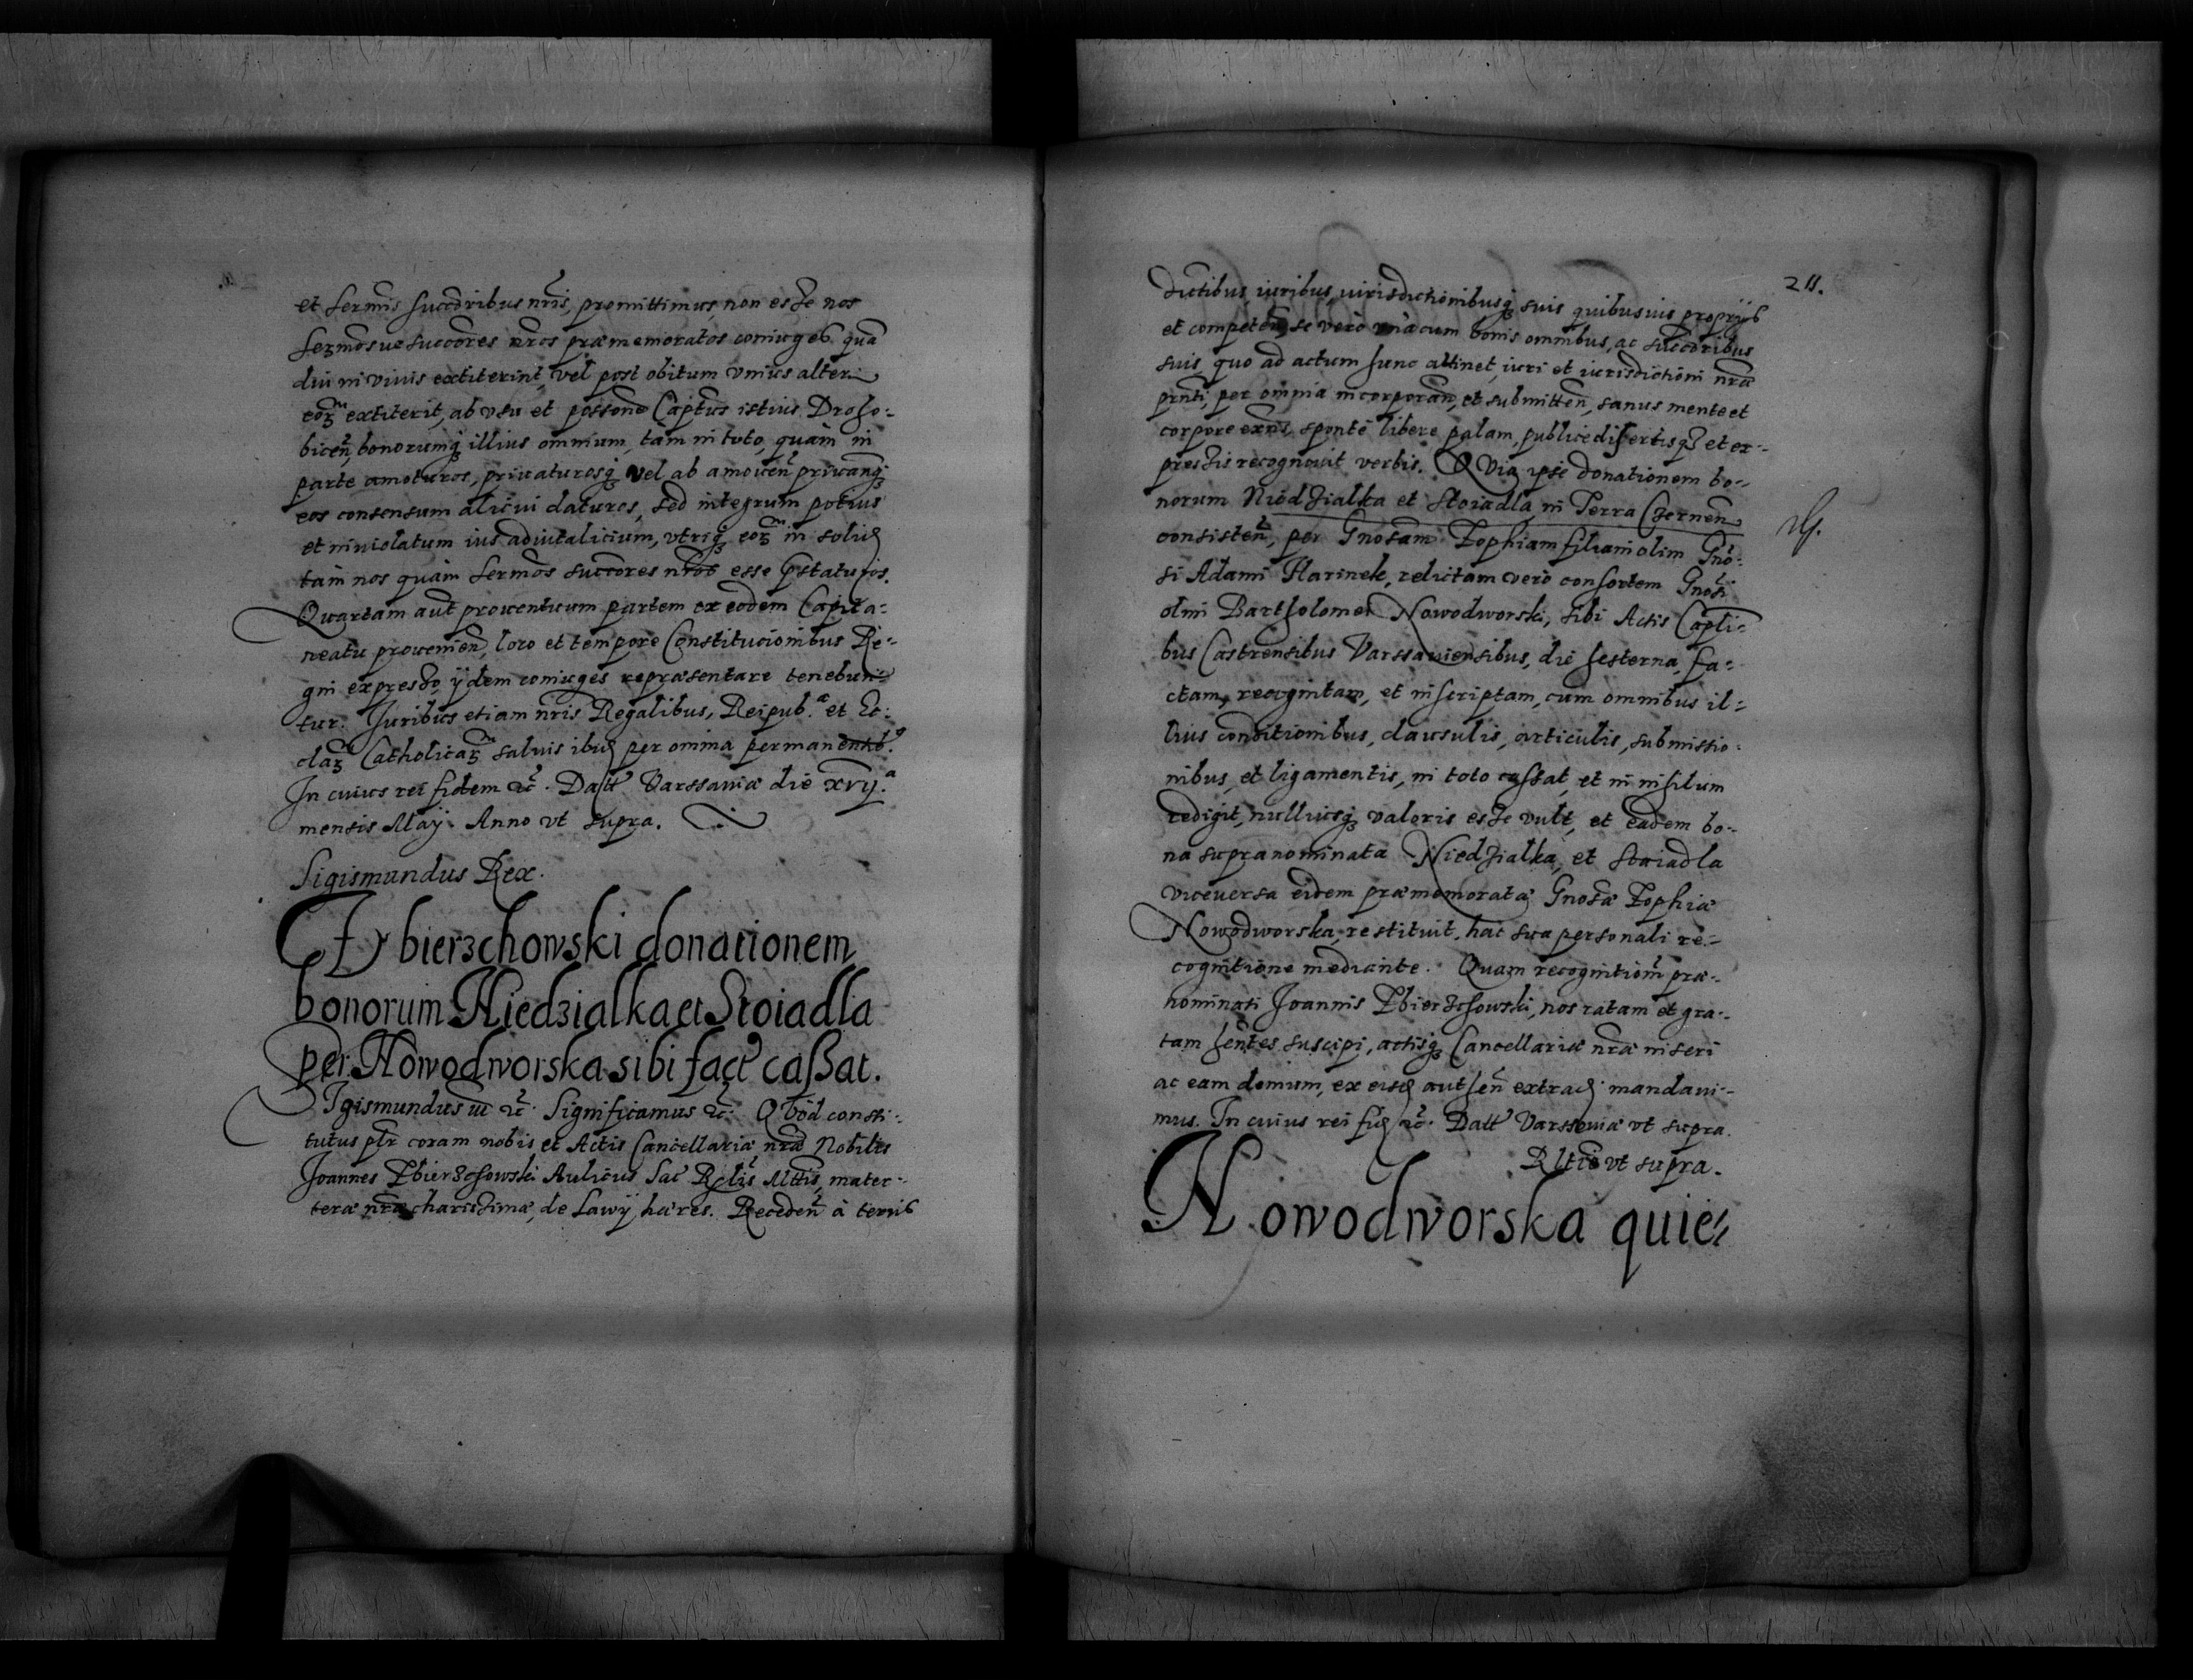 et sermis succoribus nris, promittimus, non esse nos
sermosue succores nros præmemoratos coniuges quam
diu in viuis extiterint, vel post obitum vnius alter
eorum extiterit, ab vsu et possone Captus istius Droho-
bicen, bonorumq illius omnium, tam in toto, quàm in
parte amoturos, priuaturosq vel ab amouen priuanq
eos consensum alicui daturos, sed integrum potius
et inuiolatum ius aduitalicium, vtriq eorum in solid
tam nos quàm sermos succores nros esse pstaturos.
Quartam aut prouentuum partem ex eodem Capita-
neatu prouenien, loco et tempore Constitucionibus Re-
gni expresso, ijdem coniuges repræsentare tenebun-
tur. Juribus etiam nris Regalibus, Reipub.æ et Ec-
clarum Catholicarum saluis ibid per omnia permanentib9.
In cuius rei fidem etc. Datt Varssauiæ die xvij.a
mensis Maij. Anno vt supra.
Sigismundus Rex.
Zbierzchowski donationem
bonorum Niedzialka et Stoiadla
per Nowodworska sibi fact caßat.
Sigismundus iii etc. Significamus etc. Quod consti-
tutus plr coram nobis et Actis Cancellariæ nræ Nobilis
Joannes Zbierzchowski Aulicus Sac Rglis Mttis, mater-
teræ nræ charissimæ, de Lawÿ hæres. Receden à terris
211.
dictibus, iuribus, iurisdictionibusq suis quibusuis proprijs
et competen, se verò vnà cum bonis omnibus, ac succoribus
suis, quo ad actum hunc attinet, iuri et iurisdictioni nræ
prnti, per omnia incorporan, et submitten, sanus mente et
corpore exns, sponte libere palam, publice disertisq et ex-
pressis recognouit verbis. QVia ipse donationem bo-
norum Niedzialka et Stoiadla in Terra Czernen
consisten, per Gnosam Zophiam filiam olim Gno-
si Adami Harinek, relictam verò consortem Gnosi
olim Bartholomei Nowodworski, sibi Actis Capli-
bus Castrensibus Varssauiensibus, die hesterna, fa-
ctam, recognitam, et inscriptam, cum omnibus il-
lius conditionibus, clausulis, articulis, submissio-
nibus, et ligamentis, in toto cassat, et in nihilum
redigit, nulliusq valoris esse vult, et eadem bo-
na supranominata Niedzialka, et Stoiadla
viceuersa eidem præmemoratæ Gnosæ Zophiæ
Nowodworska, restituit, hac sua personali re-
cognitione mediante. Quam recognitionem præ-
nominati Joannis Zbierzchowski, nos ratam et gra-
tam hentes suscipi, actisq Cancellariæ nræ inseri
ac eam demum, ex eisd authen extrad mandaui-
mus. In cuius rei fid etc. Datt Varssouiæ vt supra.
Rltio vt supra.
Nowodworska quie-